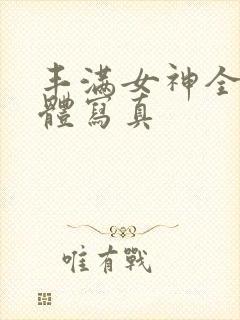 丰满女神全
體寫真
唯有戰